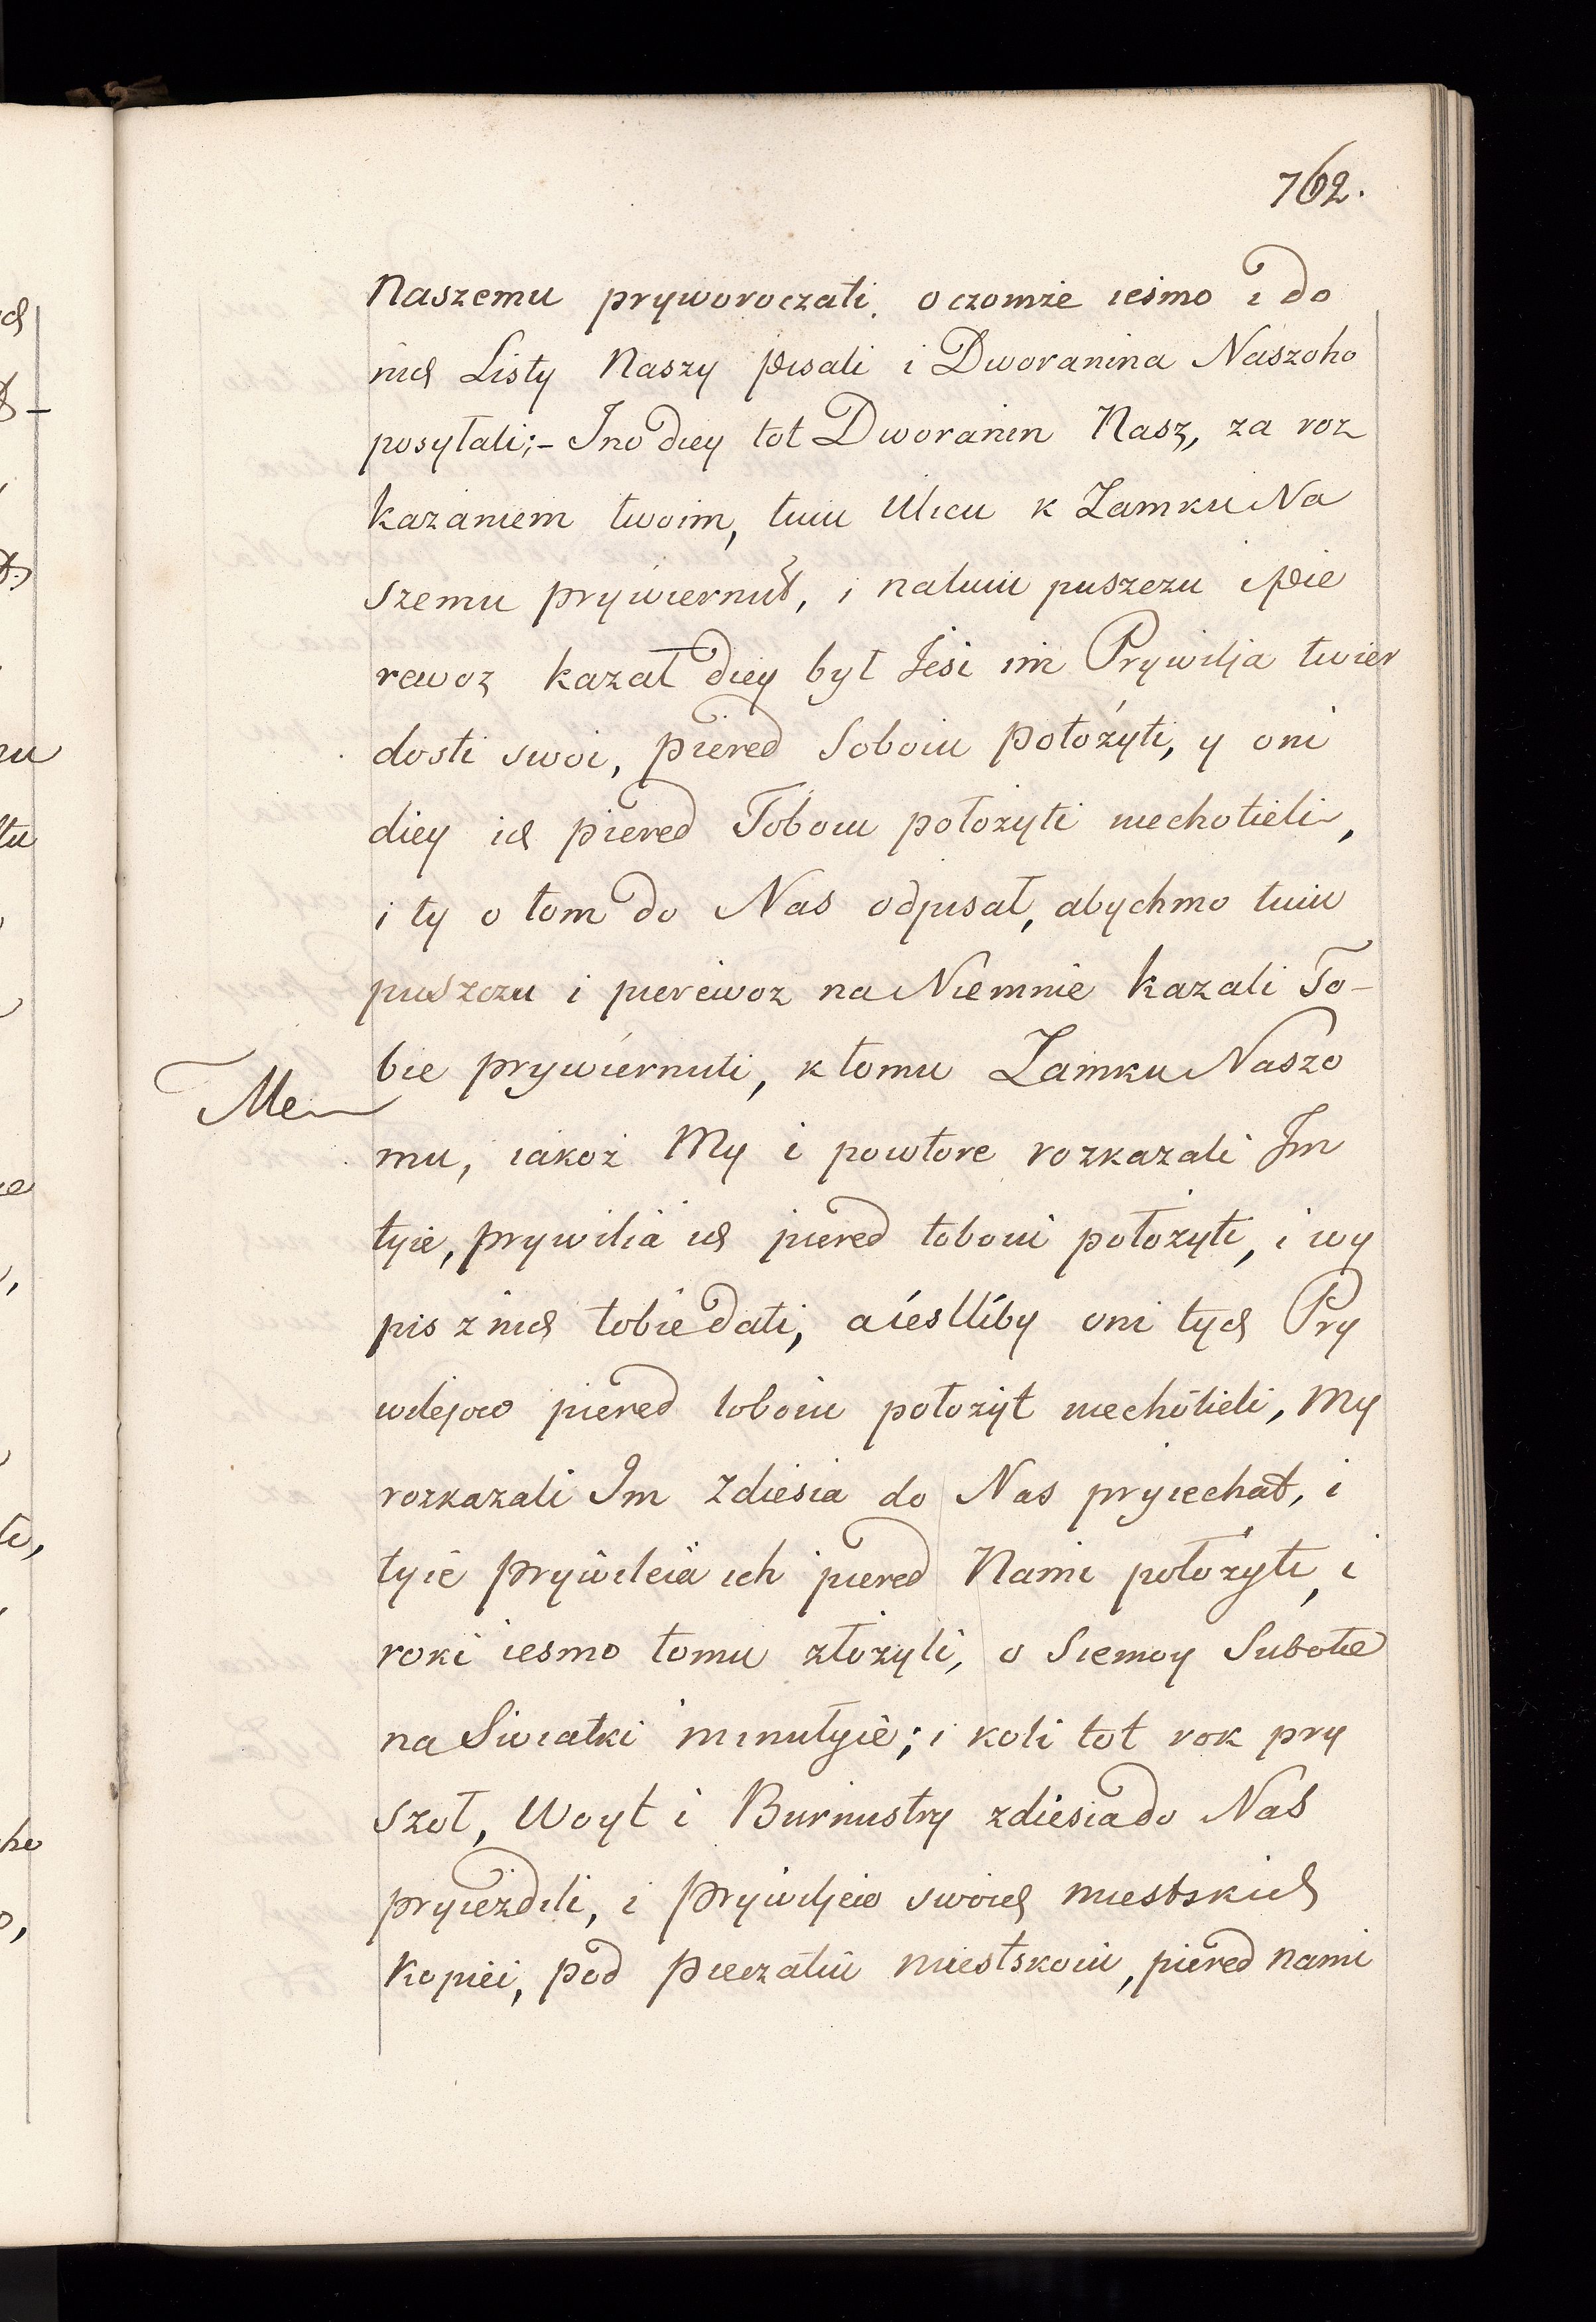 762.
Naszemu pryworoczati. oczomże iesmo i do
nich Listy Naszy pisali i Dworanina Naszoho
posyłali;- Ino diey tot Dworanin Nasz, za roz
kazaniem twoim, tuiu Ulicu k Zamku Na
szemu prywiernuł, i natuiu puszczu i Pie
rewoz kazał diey był Jesi im Prywilja twier
dosti swoi, piered Soboiu położyti, y oni
diey ich piered Toboiu położyti niechotieli,
i ty o tom do Nas odpisał, abychmo tuiu
puszczu i pierewoz na Niemnie kazali To-
bie prywiernuti, k tomu Zamku Naszo
Me
mu, iakoż My i powtore rozkazali Im
tyie, prywilia ich piered toboiu położyti, i wy
pis z nich tobie dati, a iesliby oni tych Pry
wilejow piered toboiu położyt niechotieli, My
rozkazali Im zdiesia do Nas pryiechat, i
tyie prywileia ich piered Nami położyti, i
roki iesmo tomu złożyli, o Siemoy Subotie
na Swiatki minułyie; i koli tot rok pry
szoł, Woyt i Burmistry zdiesia do Nas
pryiezdili, i prywiljeio swoich miestskich
Kopiei, pod pieczatiu miestskoiu, piered nami